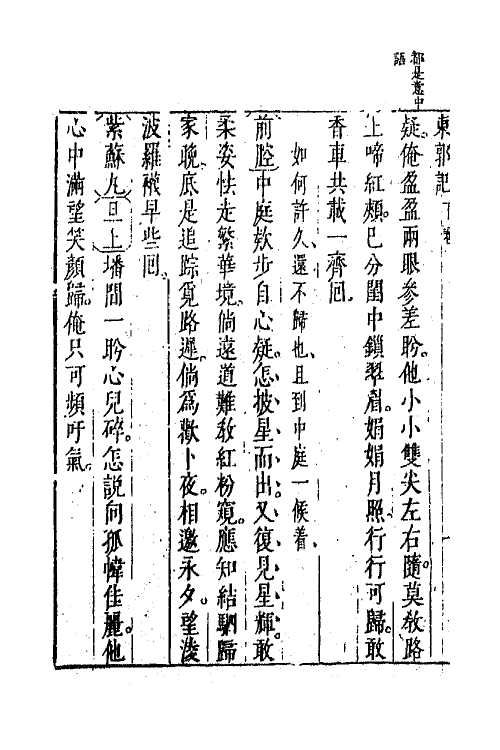 都是意中
語
東郭記下卷
疑。俺盈盈兩眼參差盼。他小小雙尖左右隨。莫教路
上啼紅頰。已分閨中鎖翠眉。娟娟月照。行行可歸。敢
香車共載一齊囘。
如何許久、還不歸也、且到中庭一候着、
前腔中庭欵步自心疑。怎披星而出。又復見星輝。敢
柔姿怯走繁華境。倘遠道難教紅粉窺。應知結駟歸
家晚。底是追踪覔路遲。倘爲歡卜夜。相邀永夕。望淩
波羅襪早些囘。
紫蘇丸旦上墦間一盻心兒碎。怎説向孤幃佳麗。他
心中滿望笑顏歸。俺只可頻吁氣。